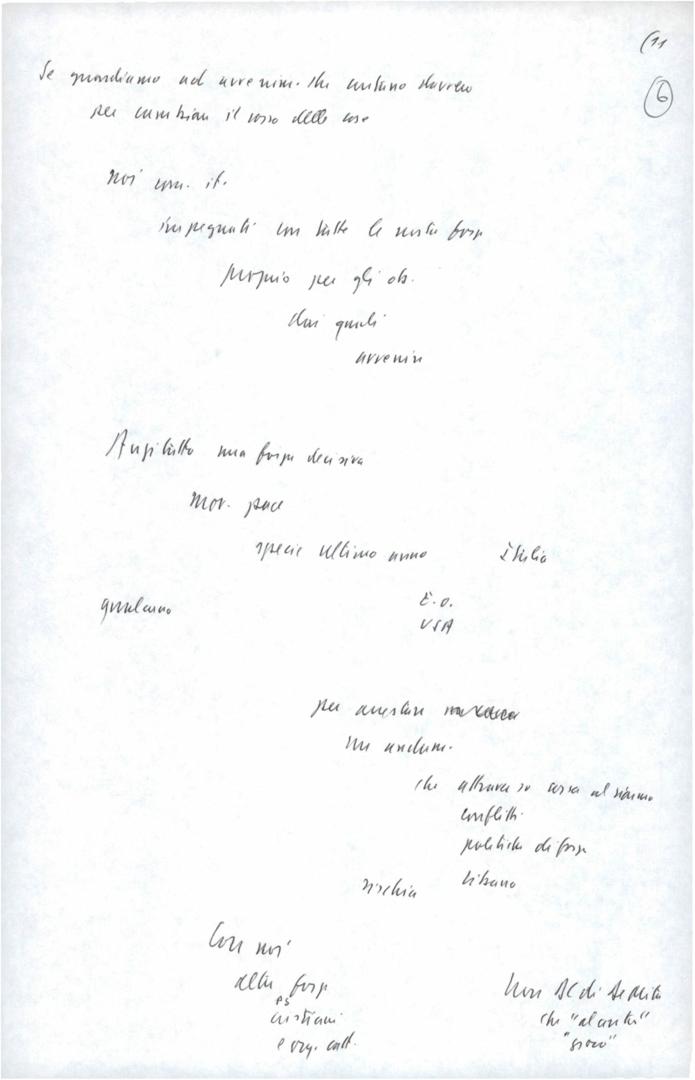 (11
6
Se guardiamo ad avvenim. che contano davvero
per cambiare il corso delle cose
noi com. it.
impegnati con tutte le nostre forze
proprio per gli ob.
dai quali
avvenire
Anzitutto una forza decisiva
mov. pace
specie ultimo anno Italia
E.O.
USA
per arrestare
un andam.
che attraverso corsa al riarmo
conflitti
politiche di forza
Libano
rischia
Con noi
altre forze
PS
cristiani
e org. catt.
Non DC di De Mita
che
"gioco"